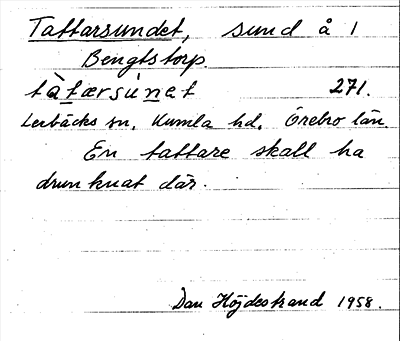 Tattarsundet, sund å 1
Bengtstorp
tàtærsu̇net 271.
Lerbäcks sn. Kumla hd. Örebro län.
En tattare skall ha
drunknat där.
Dan Höjdestrand 1958.